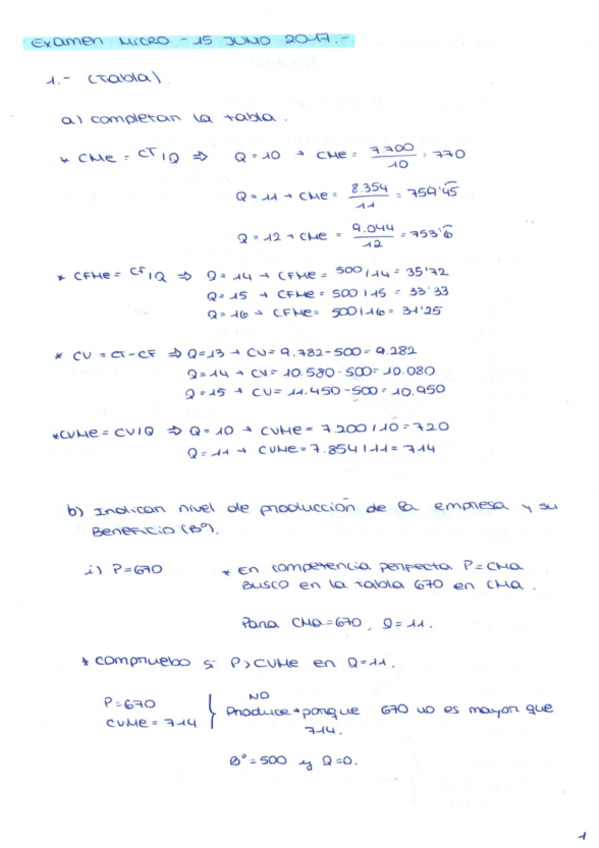 Examen MICRO - 15 JUNIO 2017.-
1.- (Tabla)
a) completar la tabla.
* CMe = CT/Q ⇒ Q=10 → CMe = 7.700/10 = 770
Q=11 → CMe = 8.354/11 = 759'45
Q=12 → CMe = 9.044/12 = 753'6
* CFMe = CF/Q ⇒ Q=14 → CFMe = 500/14 = 35'72
Q=15 → CFMe = 500/15 = 33'33
Q=16 → CFMe = 500/16 = 31'25
* CV = CT-CF ⇒ Q=13 → CV = 9.782-500 = 9.282
Q=14 → CV = 10.580-500 = 10.080
Q=15 → CV = 11.450-500 = 10.950
* CVMe = CV/Q ⇒ Q=10 → CVMe = 7.200/10 = 720
Q=11 → CVMe = 7.854/11 = 714
b) Indicar nivel de producción de la empresa y su
Beneficio (Bº).
i) P=670 * En competencia perfecta P=CMa
Busco en la tabla 670 en CMa.
Para CMa=670, Q=11.
* compruebo si P>CVMe en Q=11.
P=670
CVMe=714
NO
Produce → porque 670 no es mayor que
714.
Bº=500 y Q=0.
1